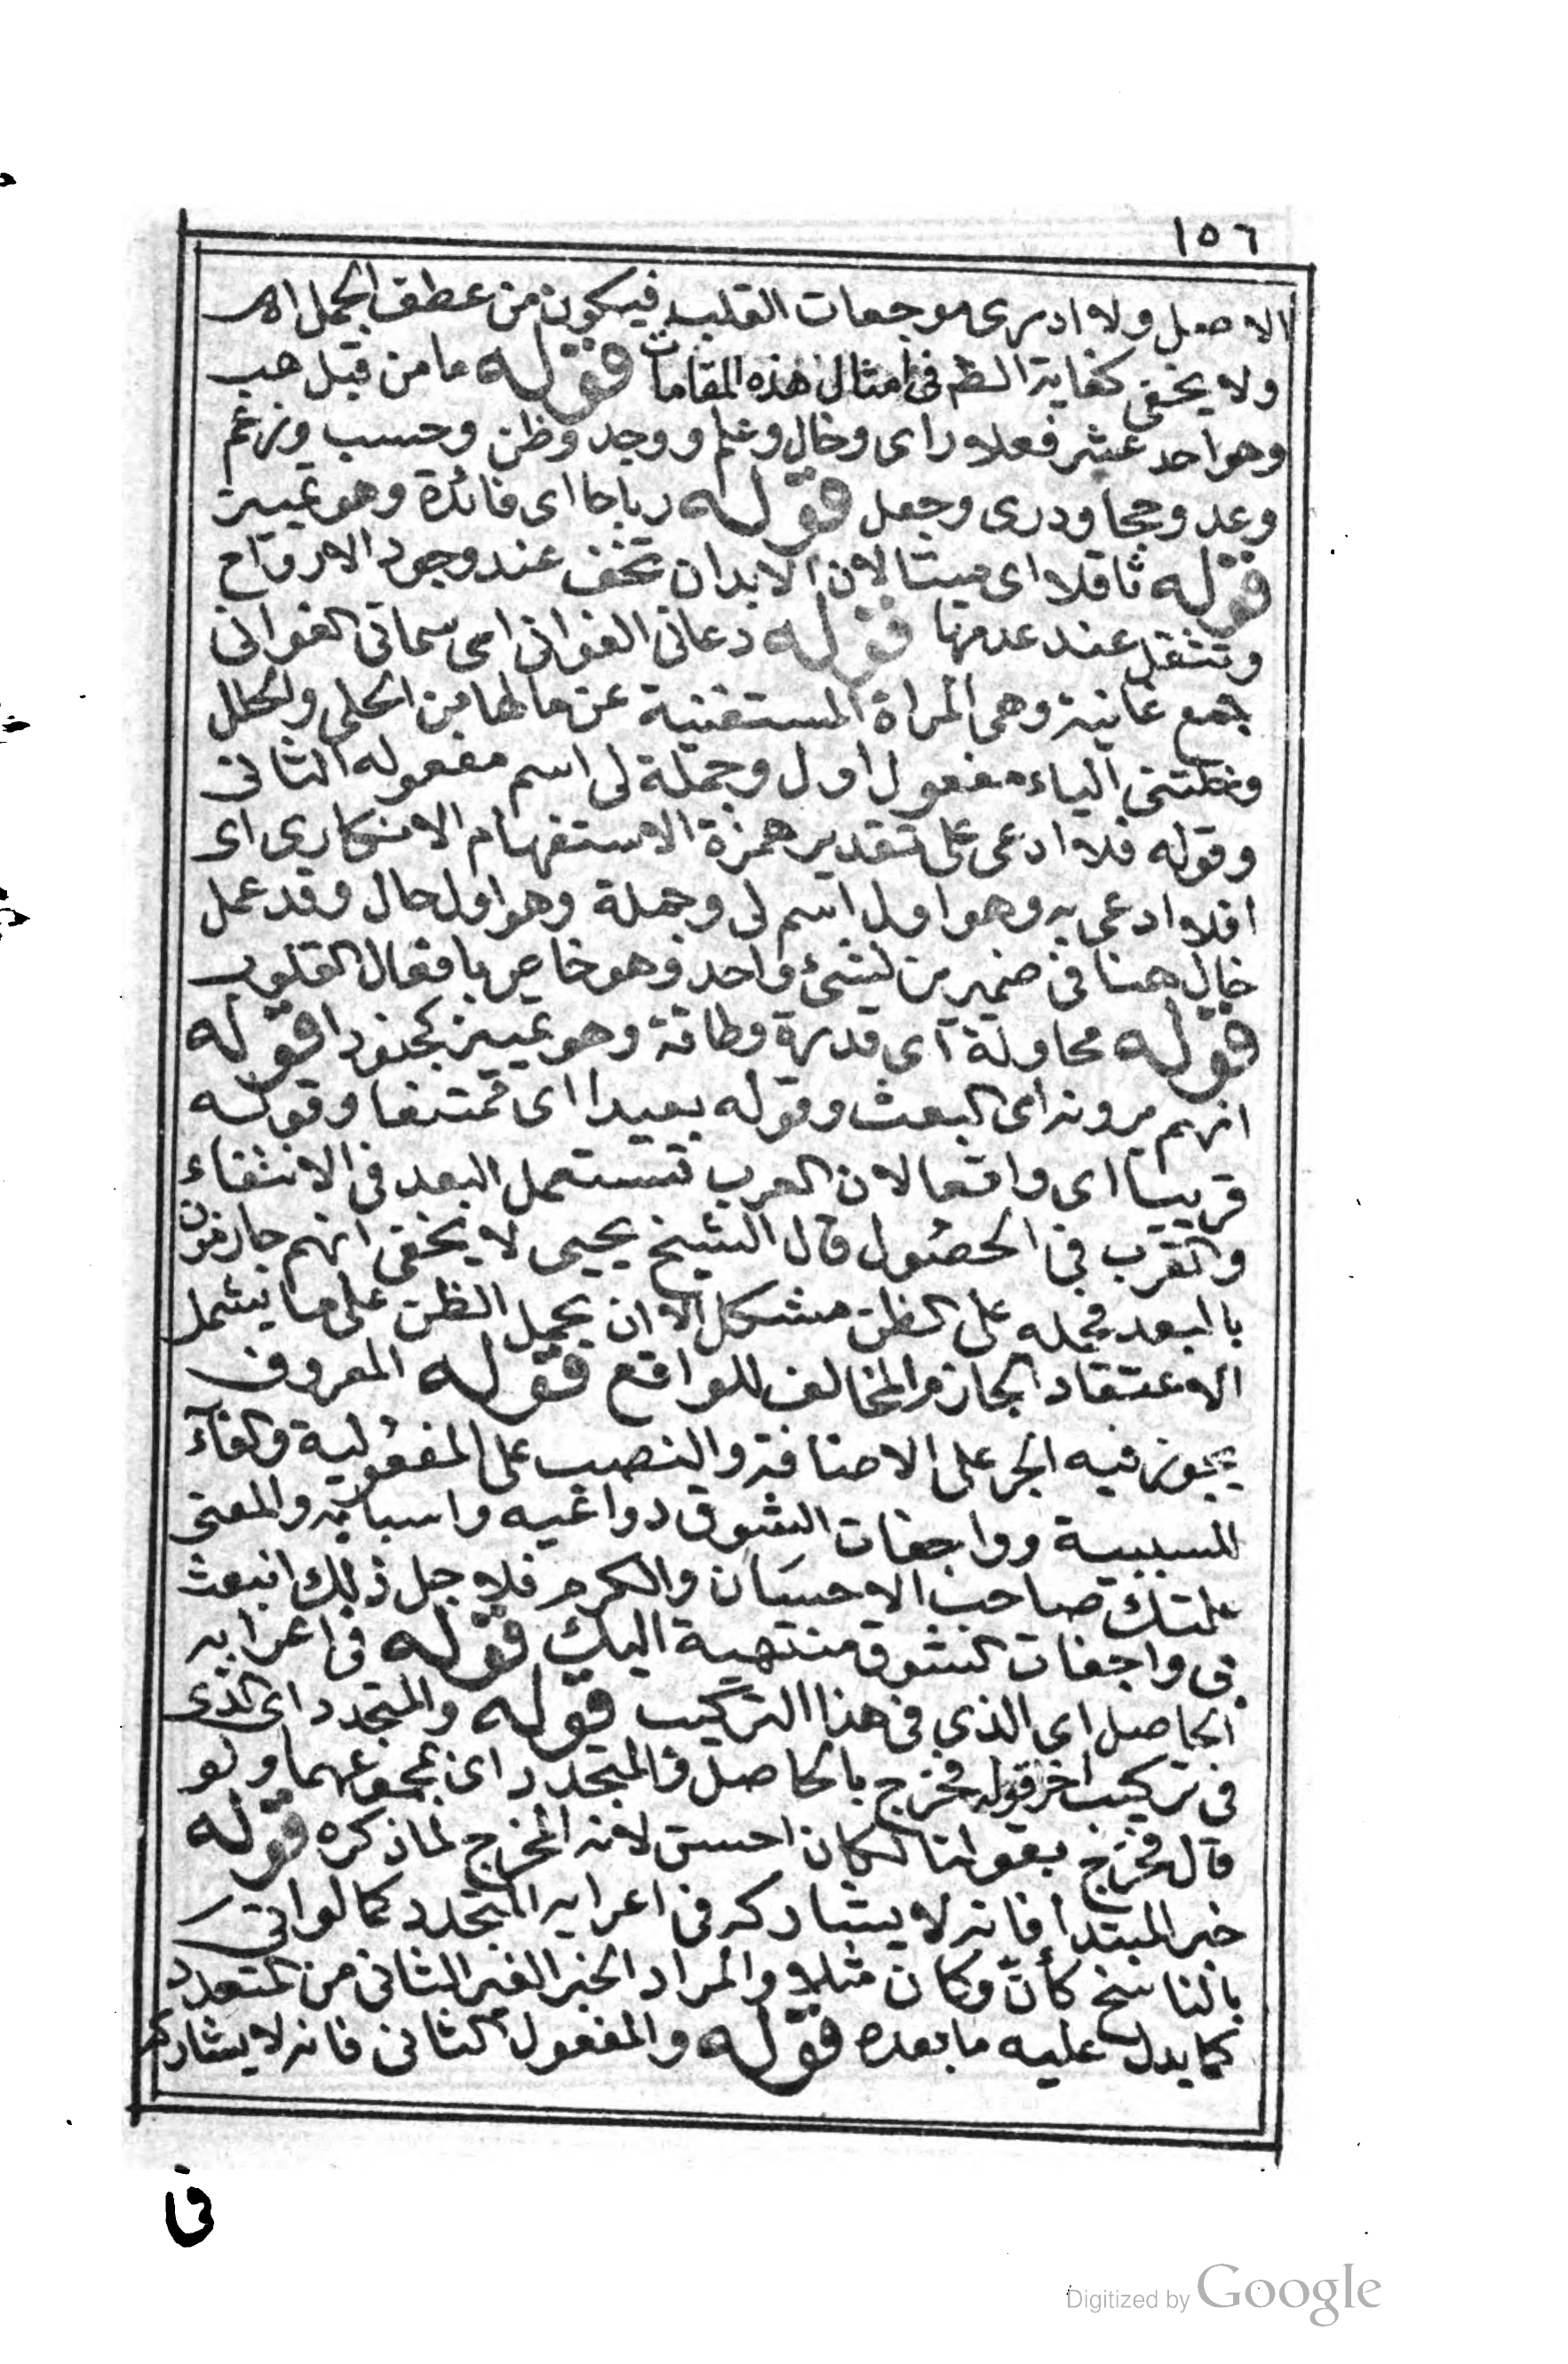 ١٥٦
الاصل ولا ادرى موجعات القلب فيكون من عطف الجمل اه
ولا يخفى كفاية الظم فى امثال هذه المقامات قوله ما من قبل هب
وهو احد عشر فعلا راى وخال وعلم ووجد وظن وحسب وزعم
وعد وحجا ودرى وجعل قوله رباحا اى فائدة وهو تمييز
قوله ثاقلا اى ميتا لان الابدان تخف عند وجود الارواح
وتثقل عند عدمها قوله دعانى الغوانى اى سمانى الغوانى
جمع غانية وهى المراة المستغنية عن مالها من الحلى والحلل
وخلتنى الياء مفعول اول وجملة لى اسم مفعوله الثانى
وقوله فلا ادعى على تقدير همزة الاستفهام الانكارى اى
افلا ادعى به وهو اول اسم لى وجملة وهو اول حال وقد عمل
خال هنا فى ضميرين لشئ واحد وهو خاص بافعال القلوب
قوله محاولة اى قدرة وطاقة وهو تمييز كجنودا قوله
انهم يرونه اى البعث وقوله بعيدا اى ممتنعا وقوله
قريبا اى واقعا لان العرب تستعمل البعد فى الانتفاء
والقرب فى الحصول قال الشيخ يحيى لا يخفى انهم جازمون
بالبعد فحمله على الظن مشكل الا ان يحمل الظن على ما يشمل
الاعتقاد الجازم المخالف للواقع قوله المعروف
يجوز فيه الجر على الاضافة والنصب على المفعولية والفآء
للسببية وواجفات الشوق دواعيه واسبابه والمعنى
علمتك صاحب الاحسان والكرم فلاجل ذلك انبعث
بى واجفات الشوق منتهية اليك قوله فى اعرابه
الحاصل اى الذى فى هذا التركيب قوله والمتجدد اى الذى
فى تركيب اخر قوله فخرج بالحاصل والمتجدد اى بمجموعهما ولو
قال فخرج بقولنا لكان احسن لانه المخرج لما ذكره قوله
خبر المبتدأ فانه لا يشاركه فى اعرابه المتجدد كما لو اتى
بالناسخ كأنّ وكان مثلا والمراد الخبر الغير الثانى من المتعدد
كما يدل عليه ما بعده قوله والمفعول الثانى فانه لا يشاركه
فى
Digitized by Google